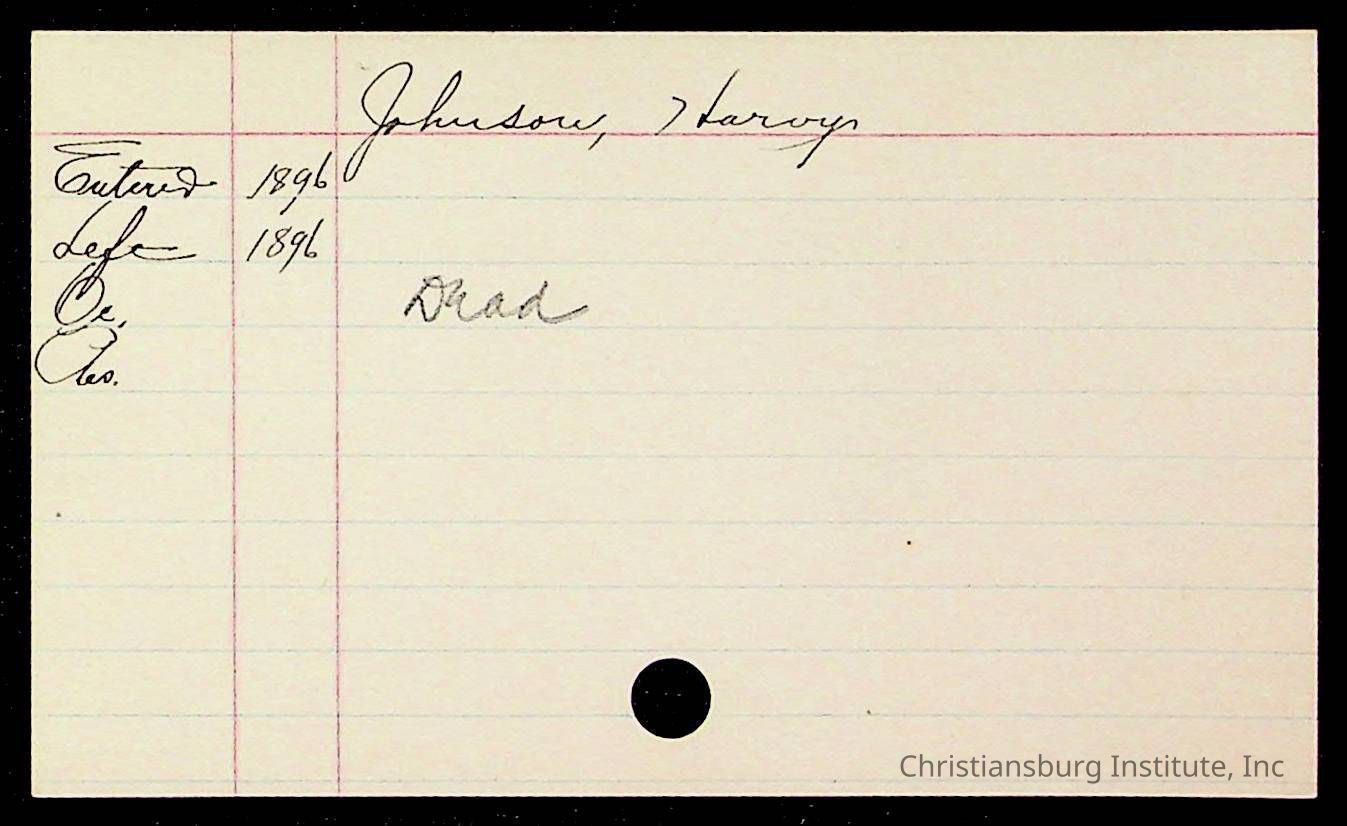 Johnson, Harvy
Entered 1896
Left 1896
Oc.
Res.
Dead
Christiansburg Institute, Inc